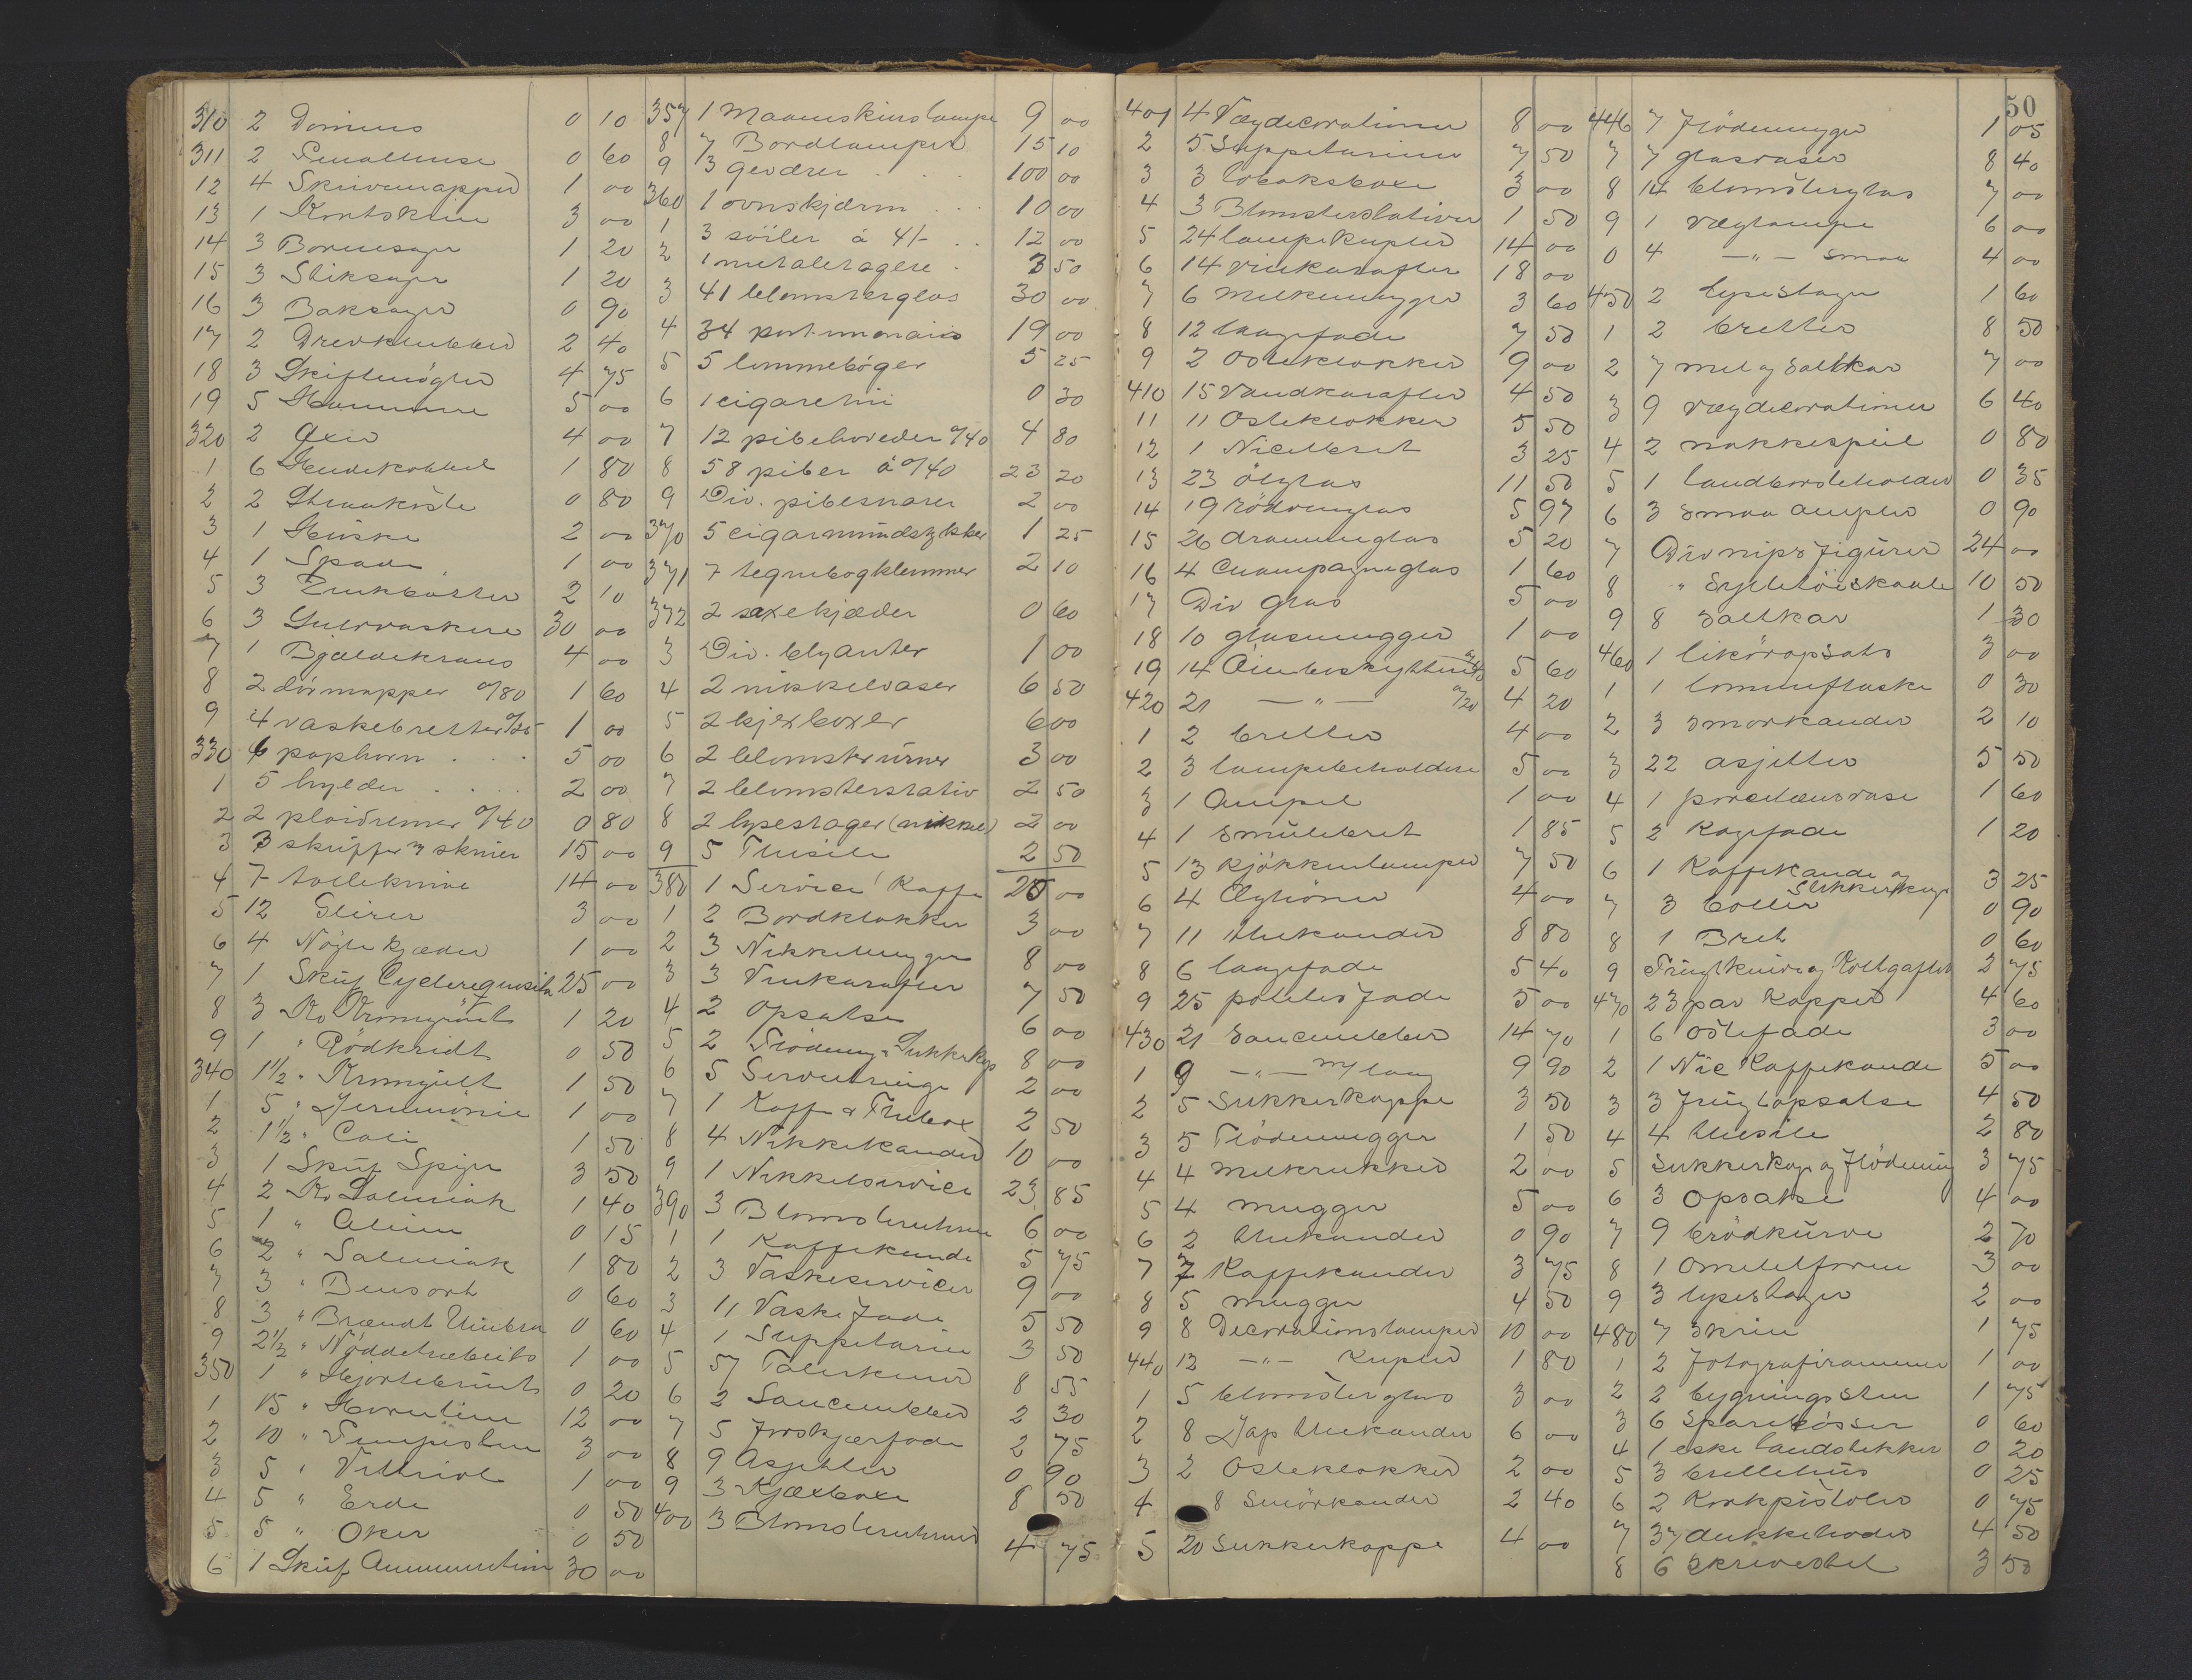 310 2 Dominos 0 10
311 2 Penalhuse 0 60
12 4 Skrivemapper 1 00
13 1 Kontskrin 3 00
14 3 Boremsager 1 20
15 3 Stiksager 1 20
16 3 Baksager 0 90
17 2 Drevklubber 2 40
18 3 Skiftenøgler 4 75
19 5 Hammere 5 00
320 2 Øxer 4 00
1 6 Hundekobbel 1 80
2 2 Straakoste 0 80
3 1 Huska 2 00
4 1 Spade 1 00
5 3 Zinkbøtter 2 10
6 3 Gulvvaskere 30 00
7 1 Bjældekrans 4 00
8 2 dørmapper a/80 1 60
9 4 vaskebretter a/25 1 00
330 6 paphorn . . . 5 00
1 5 hylder . . . 2 00
2 2 plaidremer a/40 0 80
3 3 skuffer m skruer 15 00
4 7 tolleknive 14 00
5 12 Slirer 3 00
6 4 Nøgle kjæder 1 00
7 1 Skuf Cyclerequisiter 25 00
8 3 Ko Kromgrønt 1 20
9 1 " Rødkridt 0 50
340 1 1/2 " Kromgult 1 50
1 5 " Jernmønie 1 00
2 1 1/2 " Cali 1 50
3 1 Skuf Spiger 3 50
4 2 Ko Salmiak 1 40
5 1 " Alun 0 15
6 2 " Salmiak 1 80
7 3 " Bensort 0 60
8 3 " Brændt Umbra 0 60
9 2 1/2 " Nøddetræbeits 1 00
350 1 " Hjortebrunt 0 20
1 15 " Hornlim 12 00
2 10 " Pimpesten 3 00
3 5 " Vitriol 1 00
4 5 " Erde 0 50
5 5 " Oker 0 50
6 1 Skuf Ammunition 30 00
357 1 Maaneskinslampe 9 00
8 7 Bordlamper 15 10
9 3 geværer . . . 100 00
360 1 ovnskjærm . . . 10 00
1 3 søiler á 4/- . . 12 00
2 1 metaletagere . 3 50
3 41 blomsterglas 30 00
4 34 portmonaies 19 00
5 5 lommebøger 5 25
6 1 cigaretui 0 30
7 12 pibehoveder a/40 4 80
8 58 piber á a/40 23 20
9 Div. pibesnører 2 00
370 5 cigarmundstykker 1 25
371 7 tegnebogklemmer 2 10
372 2 saxekjæder 0 60
3 Div. blyanter 1 00
4 2 nikkelvaser 6 50
5 2 kjexboxer 6 00
6 2 blomsterurner 3 00
7 2 blomsterstativ 2 50
8 2 lysestager (nikkel) 2 00
9 5 Thesile 2 50
380 1 Service Kaffe 20 00
1 2 Bordklokker 3 00
2 3 Nikkelmugger 8 00
3 3 Vinkarafler 7 50
4 2 Opsatse 6 00
5 2 Flødemug & Sukkerkop 8 00
6 5 Servietringe 2 00
7 1 Kaffe & Thebox 2 50
8 4 Nikkelkander 10 00
9 1 Nikkelservice 23 85
390 3 Blomsterurner 6 00
1 1 Kaffekande 5 75
2 3 Vaskeservicer 9 00
3 11 Vaske Fade 5 50
4 1 Suppeterrin 3 50
5 57 Talerkener 8 55
6 2 Saucenebber 2 30
7 5 Forskjærfade 2 75
8 9 Asjetter 0 90
9 3 Kjæxboxe 8 50
400 3 Blomsterurner 4 75
401 4 Vægdecorationer 8 00
2 5 Suppeteriner 7 50
3 3 tobaksboxe 3 00
4 3 Blomsterstativer 1 50
5 24 lampekupler 14 00
6 14 vinkarafler 18 00
7 6 Melkemugger 3 60
8 12 kagefade 7 50
9 2 Osteklokker 9 00
410 15 Vandkarafler 4 50
11 11 Osteklokker 5 50
12 1 Nicelbret 3 25
13 23 ølglas 11 50
14 19 Rødvinglas 5 97
15 26 dramneglas 5 20
16 4 Champagneglas 1 60
17 Div glas 5 00
18 10 glasmugger 1 00
19 14 Øienbeskyttere a/40 5 60
420 21 — " — a/20 4 20
1 2 bretter 4 00
2 3 lampebeholdere 5 00
3 1 Ampel 1 00
4 1 Smulebret 1 85
5 13 Kjøkkenlamper 7 50
6 4 Æghøner 4 00
7 11 thekander 8 80
8 6 kagefade 5 40
9 25 potetes fade 5 00
430 21 Saucenebber 14 70
1 9 — " — m/ laag 9 90
2 5 Sukkerkoppe 3 50
3 5 Flødemugger 1 50
4 4 Melkekrukker 2 00
5 4 mugger 5 00
6 2 thekander 0 90
7 7 Kaffekander 3 75
8 5 mugger 4 50
9 8 Decorationslamper 10 00
440 12 — " — Kupler 1 80
1 5 blomsterglas 3 00
2 8 Jap thekander 6 00
3 2 Osteklokker 2 00
4 8 Smørkander 2 40
5 20 Sukkerkoppe 4 00
50
446 7 Flødemugger 1 05
7 7 glasvaser 8 40
8 14 blomsterglas 7 00
9 1 væglampe 6 00
0 4 — " — smaa 4 00
450 2 lysestager 1 60
1 2 bretter 8 50
2 7 mel og Saltkar 7 00
3 9 vægdecorationer 6 40
4 2 nakkespeil 0 80
5 1 tandbørsteholder 0 35
6 3 smaa ampler 0 90
7 Div nipsfigurer 24 00
8 " Syltetøiskaale 10 50
9 8 Saltkar 1 30
460 1 likøropsats 3 00
1 1 lommeflaske 0 30
2 3 Smørkander 2 10
3 22 asjetter 5 50
4 1 porcelænsvase 1 60
5 2 Kagefade 1 20
6 1 Kaffekande og Sukkerkop 3 25
7 3 boller 0 90
8 1 Bret 0 60
9 Frugtknive og Koltgafler 2 75
470 23 par Kopper 4 60
1 6 Ostefade 3 00
2 1 Nic Kaffekande 5 00
3 3 Frugtopsatse 4 50
4 4 thesile 2 80
5 Sukkerkop og Flødemug 3 75
6 3 Opsatse 4 00
7 9 brødkurve 2 70
8 1 Omeletform 3 00
9 3 lysestager 2 00
480 7 Skrin 1 75
1 2 fotografirammer 1 00
2 2 bygningssten 1 75
3 6 Sparebøsser 0 60
4 1 eske tandstikker 0 20
5 3 brillehus 0 25
6 2 Korkpistoler 0 75
7 37 dukkehoder 4 50
8 6 Skrivestel 3 50